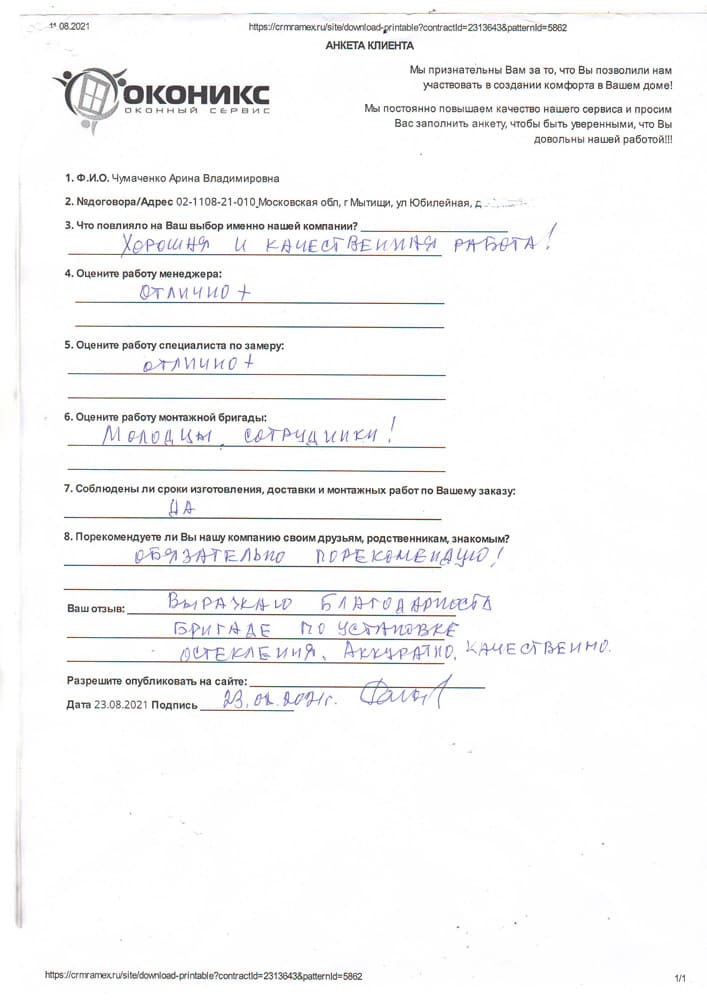 11.08.2021 https://crmramex.ru/site/download-printable?contractId=2313643&patternId=5862
АНКЕТА КЛИЕНТА
ОКОНИКС
ОКОННЫЙ СЕРВИС
Мы признательны Вам за то, что Вы позволили нам
участвовать в создании комфорта в Вашем доме!
Мы постоянно повышаем качество нашего сервиса и просим
Вас заполнить анкету, чтобы быть уверенными, что Вы
довольны нашей работой!!!
1. Ф.И.О. Чумаченко Арина Владимировна
2. №договора/Адрес 02-1108-21-010 Московская обл, г Мытищи, ул Юбилейная, д
3. Что повлияло на Ваш выбор именно нашей компании?
Хорошая и качественная работа!
4. Оцените работу менеджера:
отлично +
5. Оцените работу специалиста по замеру:
отлично +
6. Оцените работу монтажной бригады:
Молодцы, сотрудники!
7. Соблюдены ли сроки изготовления, доставки и монтажных работ по Вашему заказу:
ДА
8. Порекомендуете ли Вы нашу компанию своим друзьям, родственникам, знакомым?
Обязательно порекомендую!
Ваш отзыв: Выражаю благодарность
бригаде по установке
остекления. Аккуратно, качественно.
Разрешите опубликовать на сайте:
Дата 23.08.2021 Подпись 23.08.2021г.
https://crmramex.ru/site/download-printable?contractId=2313643&patternId=5862 1/1